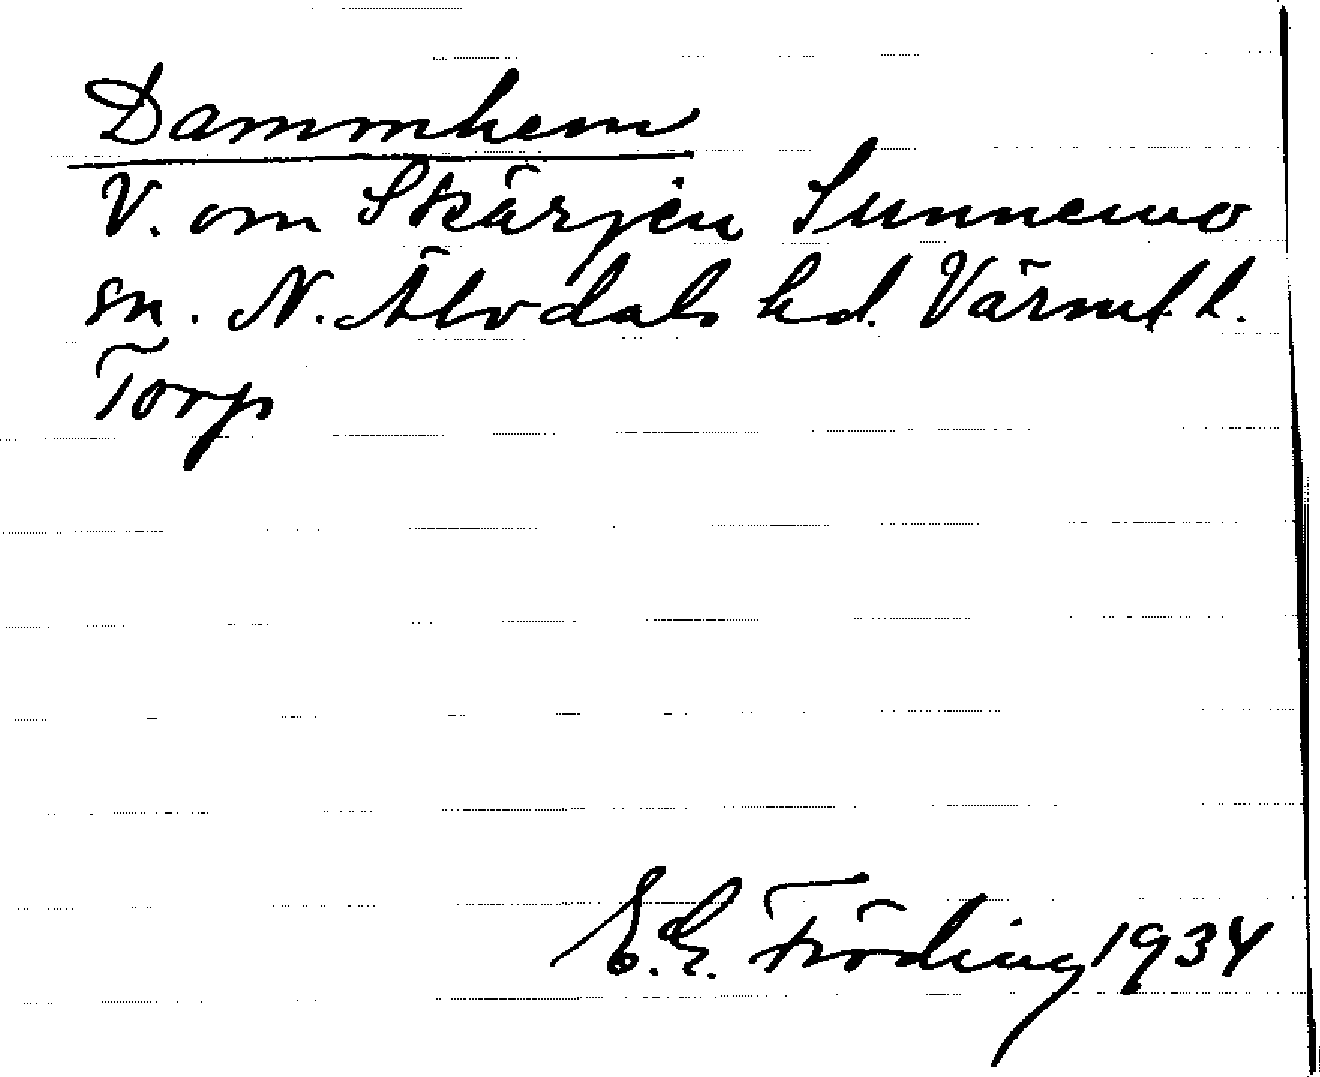 Dammhem
V. om Skärjen Sunnemo
sn. N. Älvdals hd. Värml. l.
Torp
E. E. Fröding 1934